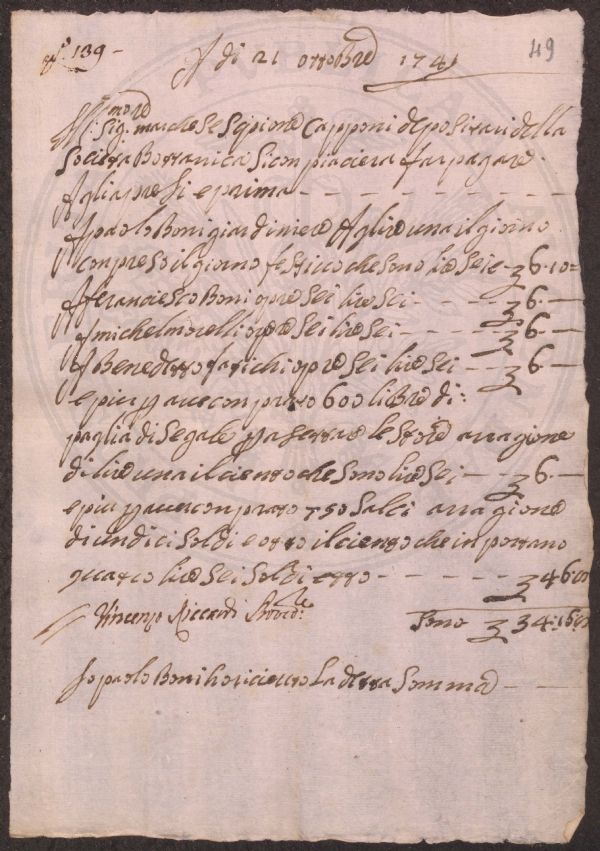 N.° 139 - A di 21 ottobre 1741 49
Ill:mo Sig. marchese Scipione Capponi depositari della
Società Bottanica Si conpiacierà far pagare
Agliapresi e prima
A paolo Boni giardiniere A lire una il giorno
conpreso il giorno festivo che sono lire sei e - 6. 10 =
A franciesco Boni opre sei lire sei - 6. -
A michel morelli opre sei lire sei - 6. -
A Benedetto farichi opre sei lire sei - 6 -
e piu p avere conprato 600 libre di:
paglia di Segale p a le store a ragione
di lire una il ciento che sono lire sei - 6. -
e piu p aver conprato 750 Salci a ragione
di undici soldi e otto il ciento che inportano
quatro lire sei soldi otto - 4 6
Vincenzo Riccardi Provd.re Sono 34: 16
Io paolo Boni ho riceuto La detta Somma